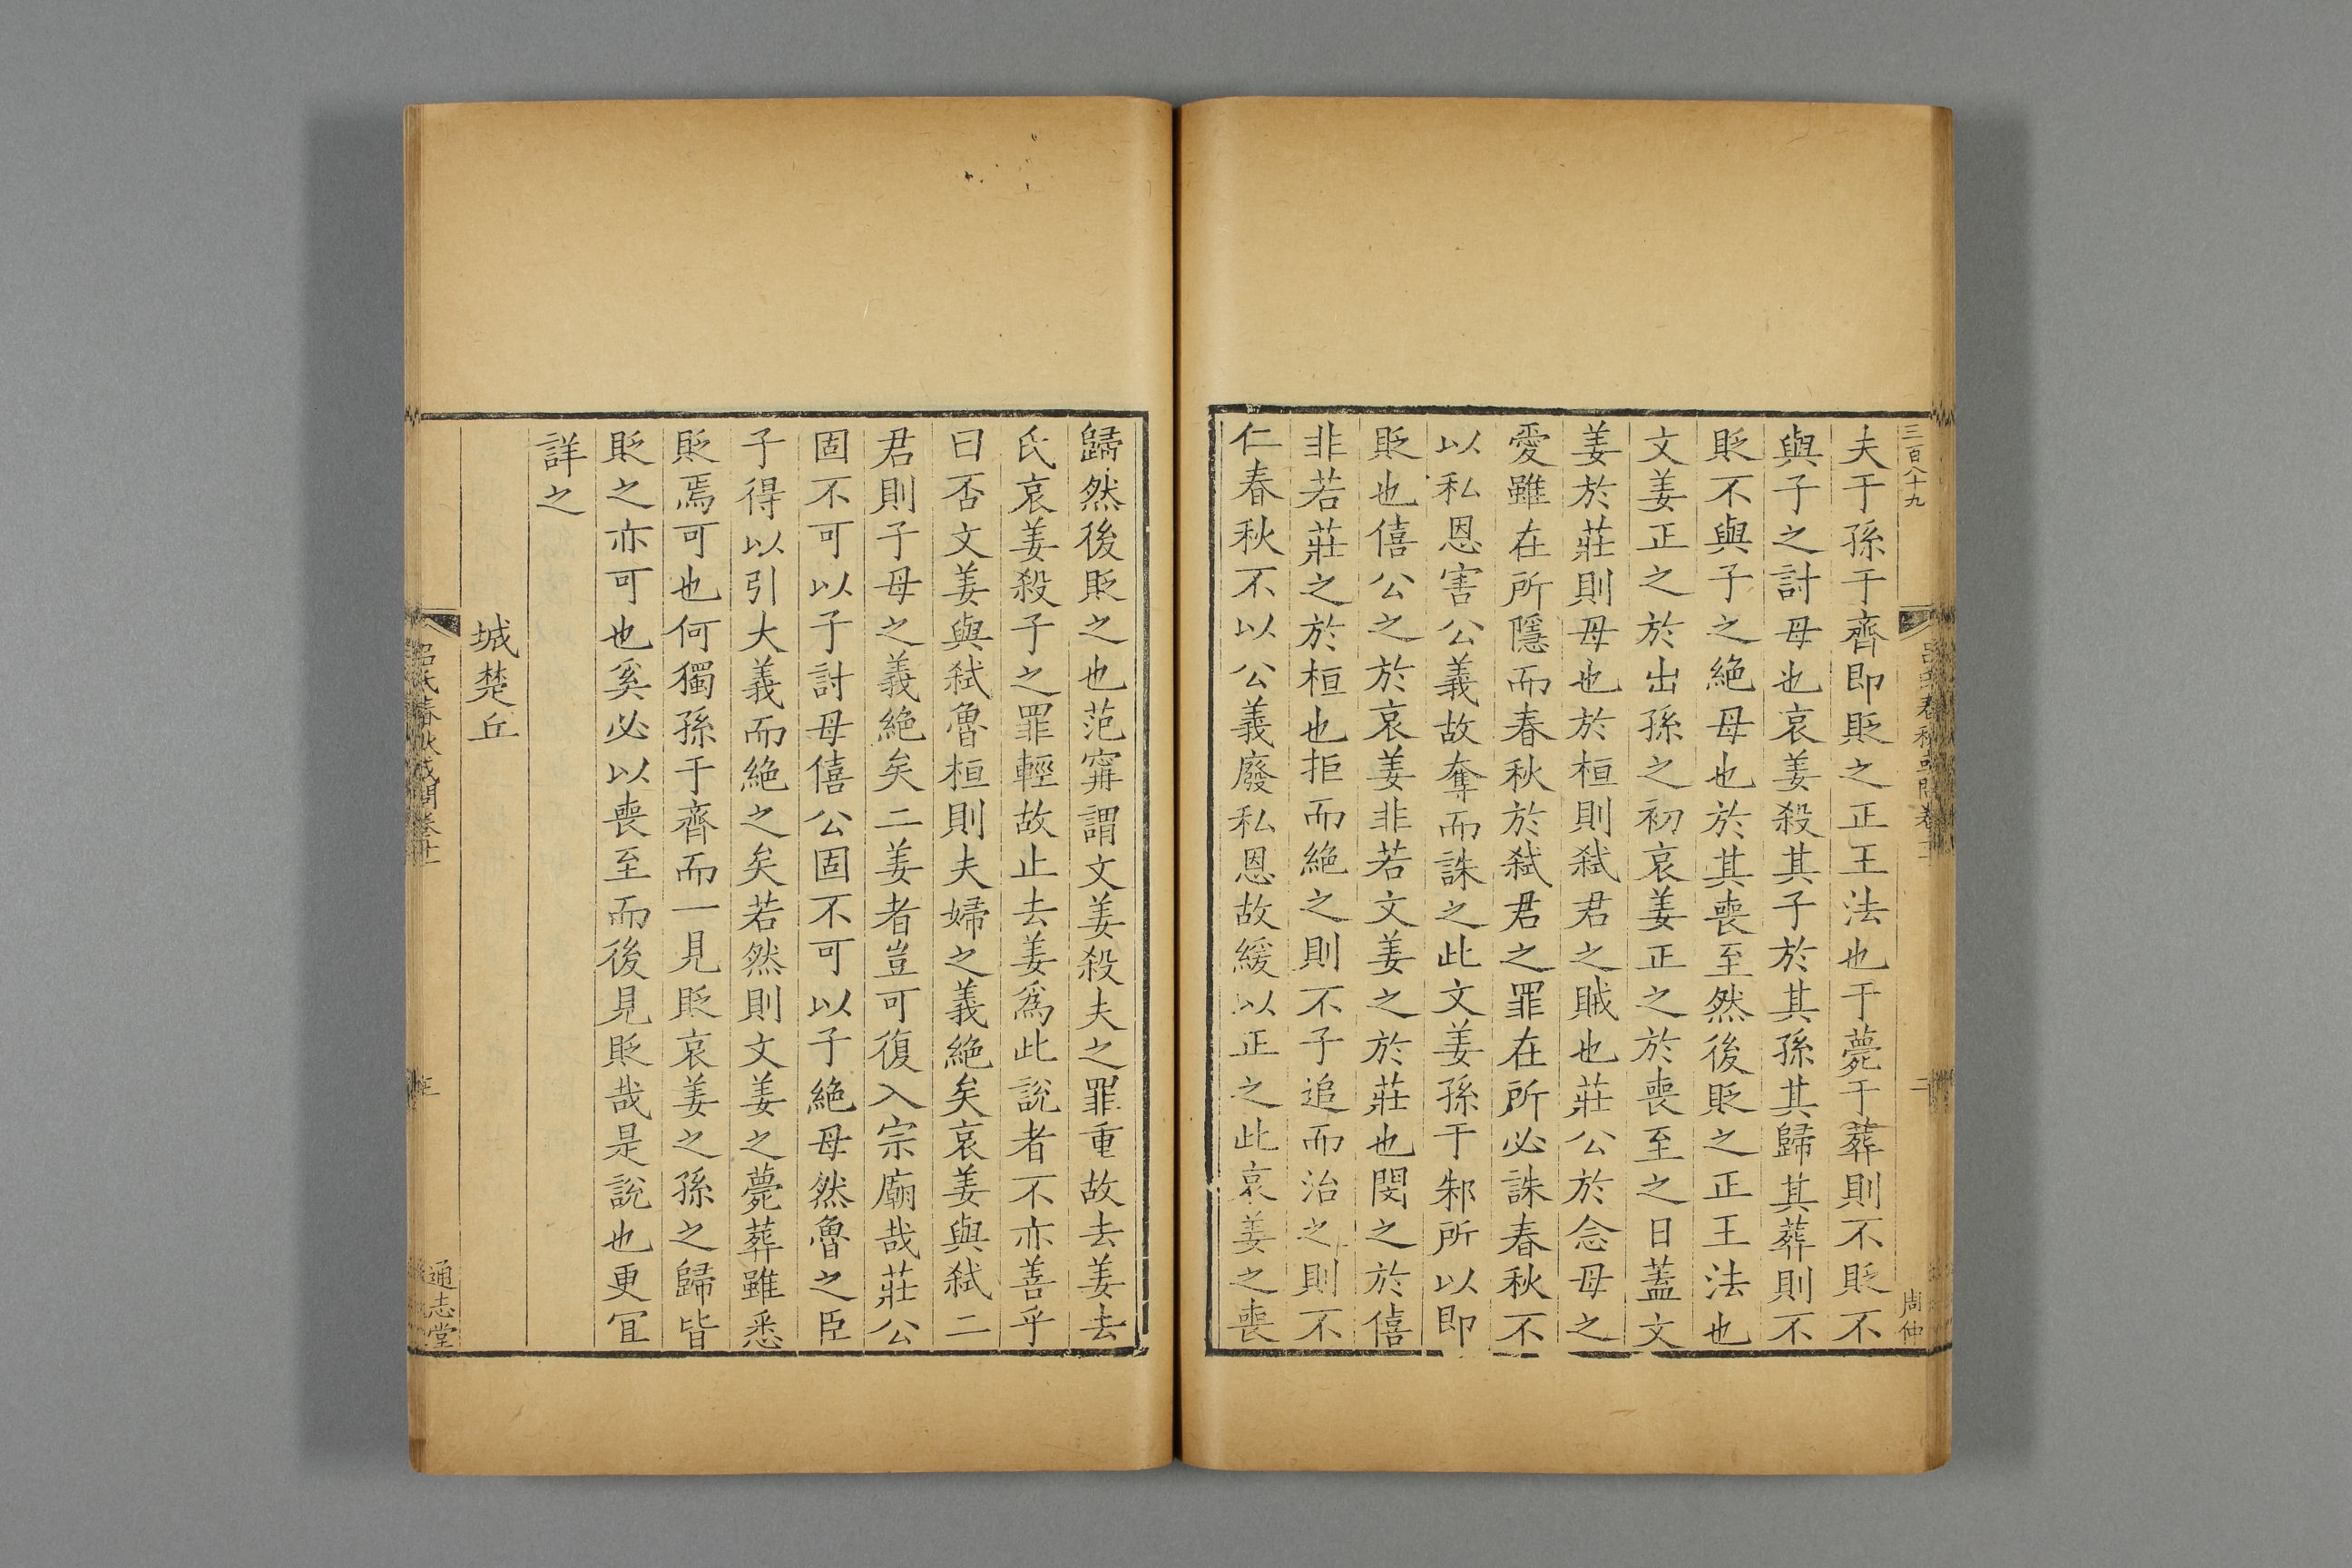 三百八十九
周仲
夫于孫于齊即貶之正王法也于薨于葬則不貶不
與子之討母也哀姜殺其子於其孫其歸其葬則不
貶不與子之絶母也於其喪至然後貶之正王法也
文姜正之於出孫之初哀姜正之於喪至之日蓋文
姜於莊則母也於桓則弒君之賊也莊公於念母之
愛雖在所隱而春秋於弒君之罪在所必誅春秋不
以私恩害公義故奪而誅之此文姜孫于邾所以即
貶也僖公之於哀姜非若文姜之於莊也閔之於僖
非若莊之於桓也拒而絶之則不子追而治之則不
仁春秋不以公義廢私恩故緩以正之此哀姜之喪
歸然後貶之也范甯謂文姜殺夫之罪重故去姜去
氏哀姜殺子之罪輕故止去姜爲此說者不亦善乎
曰否文姜與弒魯桓則夫婦之義絶矣哀姜與弒二
君則子母之義絶矣二姜者豈可復入宗廟哉莊公
固不可以子討母僖公固不可以子絶母然魯之臣
子得以引大義而絶之矣若然則文姜之薨葬雖悉
貶焉可也何獨孫于齊而一見貶哀姜之孫之歸皆
貶之亦可也奚必以喪至而後見貶哉是說也更宜
詳之
城楚丘
呂氏春秋或問卷十二
通志堂